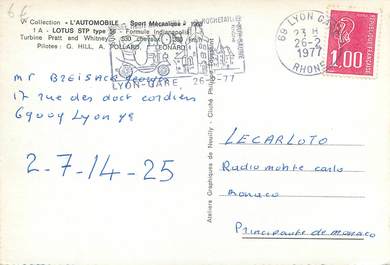 66
W Collection « L'AUTOMOBILE - Sport Mécanique »
1 A - LOTUS STP type 56 - Formule Indianapolis
Turbine Pratt and Whitney
Pilotes : G. HILL, A. POLLARD, LEONARD
ROCHETAILLÉE
LYON-GARE 26-2-77
69 LYON GARE
23 H
26-2
1977
RHONE
1,00
Mr
17 rue des docteurs cordier
69009 Lyon 49
2-7-14-25
Ateliers Graphiques de Neuilly - Cliché
LECARLOTO
Radio monte carlo
Monaco
Principauté de monaco